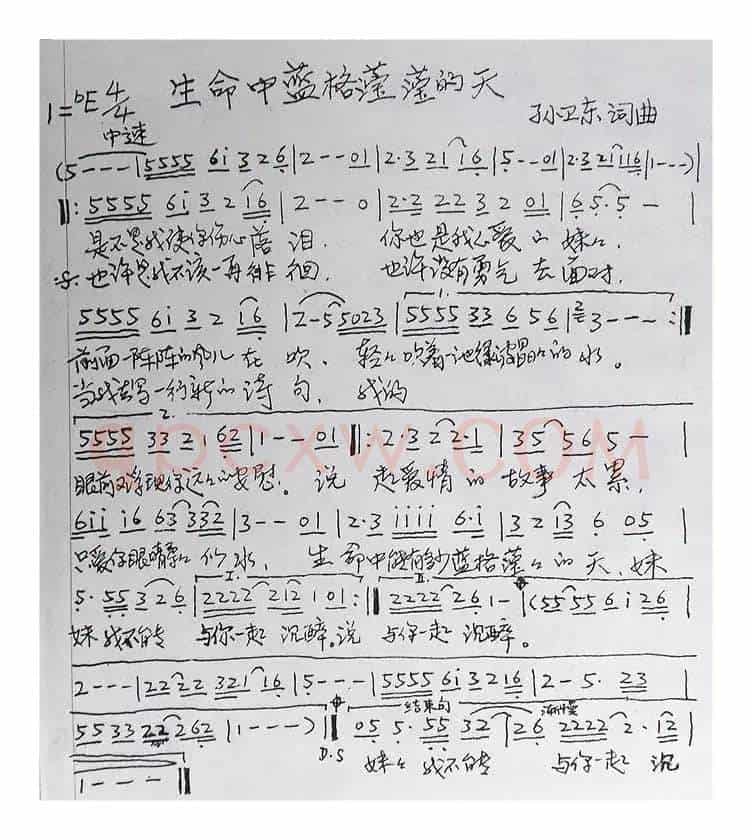 生命中蓝格莹莹的天
1=bE 4/4
中速
孙卫东 词曲
(5 - - - | 5555 6i 3 2 6 | 2 - - 01 | 2·3 21 16 | 5 - - 01 | 2·3 21116 | 1 - - - ) |
‖: 5555 6i 3 2 16 | 2 - - 0 | 2·2 22 3 2 01 | 6 5·5 - |
是不是我使你伤心落泪. 你也是我心爱的妹妹.
也许是我不该一再徘徊. 也许没有勇气去面对.
1.
5555 6i 3 2 16 | 2 - 5 5023 | 5555 33 6 56 | 3 - - - :‖
前面一阵阵的风儿在吹. 轻轻吹着一池绿的水。
当我写一行新的诗句. 我的
2.
5555 33 2 1 62 | 1 - - 01 ‖: 2·3 2 2·1 | 35 5 6 5 - |
眼前又浮现你的安慰。说起爱情的故事太累,
6ii i6 63 332 | 3 - - 01 | 2·3 iiii 6·i | 3 2 i3 6 05 |
只爱你眼睛似水, 生命中蓝格莹莹的天、妹
I. II.
5· 55 3 2 6 | 2222 212 1 01 :‖ 2222 2 6 1 - | (55 55 6 i 26 |
妹我不能 与你一起沉醉。说 与你一起沉醉。
2 - - - | 2222 321 16 | 5 - - - | 5555 6i 3 2 16 | 2 - 5· 23 |
结束句 渐慢
5533 22 262 | 1 - - - ) ‖ 05 5· 55 32 | 26 2222 2· 12 |
D.S 妹妹 我不能 与你一起 沉
1 - - - ‖
apcxw.COM